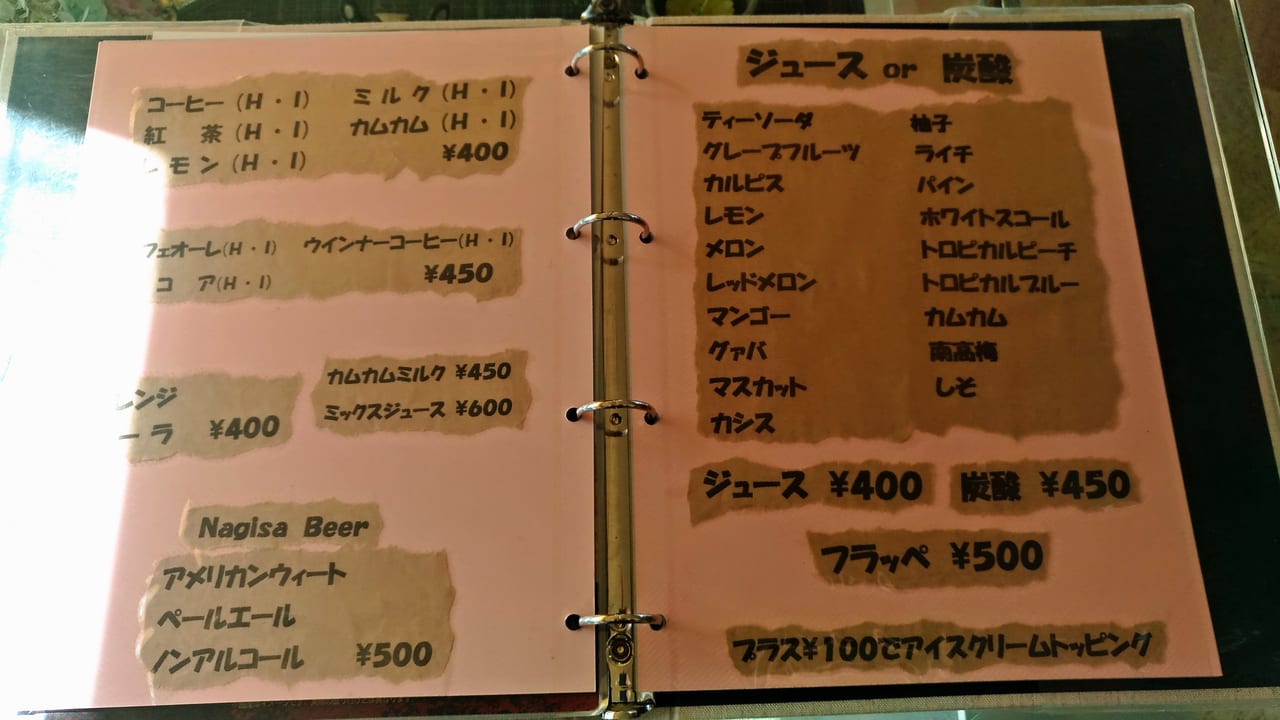 コーヒー(H・I) ミルク(H・I)
紅 茶(H・I) カムカム(H・I)
モン(H・I) ¥400
フェオーレ(H・I) ウインナーコーヒー(H・I)
コ ア(H・I) ¥450
レンジ
ーラ ¥400
カムカムミルク ¥450
ミックスジュース ¥600
Nagisa Beer
アメリカンウィート
ペールエール
ノンアルコール ¥500
ジュース or 炭酸
ティーソーダ 柚子
グレープフルーツ ライチ
カルピス パイン
レモン ホワイトスコール
メロン トロピカルピーチ
レッドメロン トロピカルブルー
マンゴー カムカム
グァバ 南高梅
マスカット しそ
カシス
ジュース ¥400 炭酸 ¥450
フラッペ ¥500
プラス¥100でアイスクリームトッピング